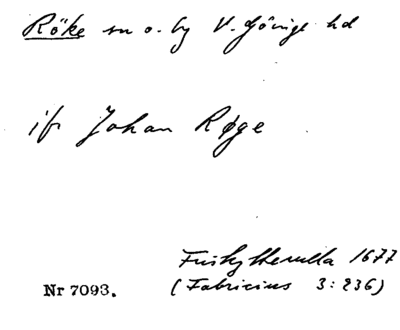 Röke sn o. by V. Göinge hd
jfr Johan Røge
Friskytterulla 1677
Nr 7093. (Fabricius 3:236)